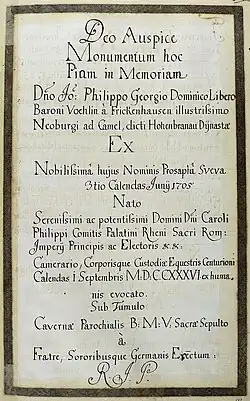 Deo Auspice
Monumentum hoc
Piam in Memoriam
Dño Jo: Philippo Georgio Dominico Libero
Baroni Vöchlin à Frickenhausen illustrissimo
Neoburgi ad Camel, dicti Hohenbranau Dijnastæ
Ex
Nobilissima hujus Nominis Prosapia Sveva
3tio Calendas Junij 1705
Nato
Serenissimi ac potentissimi Domini Dñi Caroli
Philippi Comitis Palatini Rheni Sacri Rom:
Imperij Principis ac Electoris &&.
Camerario, Corporisque Custodiæ Equestris Centurioni
Calendas 1 Septembris M.D.CCXXXVI ex huma
nis evocato.
Sub Tumulo
Cavernæ Parochialis B: M: V: Sacræ Sepulto
à
Fratre, Sororibusque Germanis Erectum:
R. J. P.